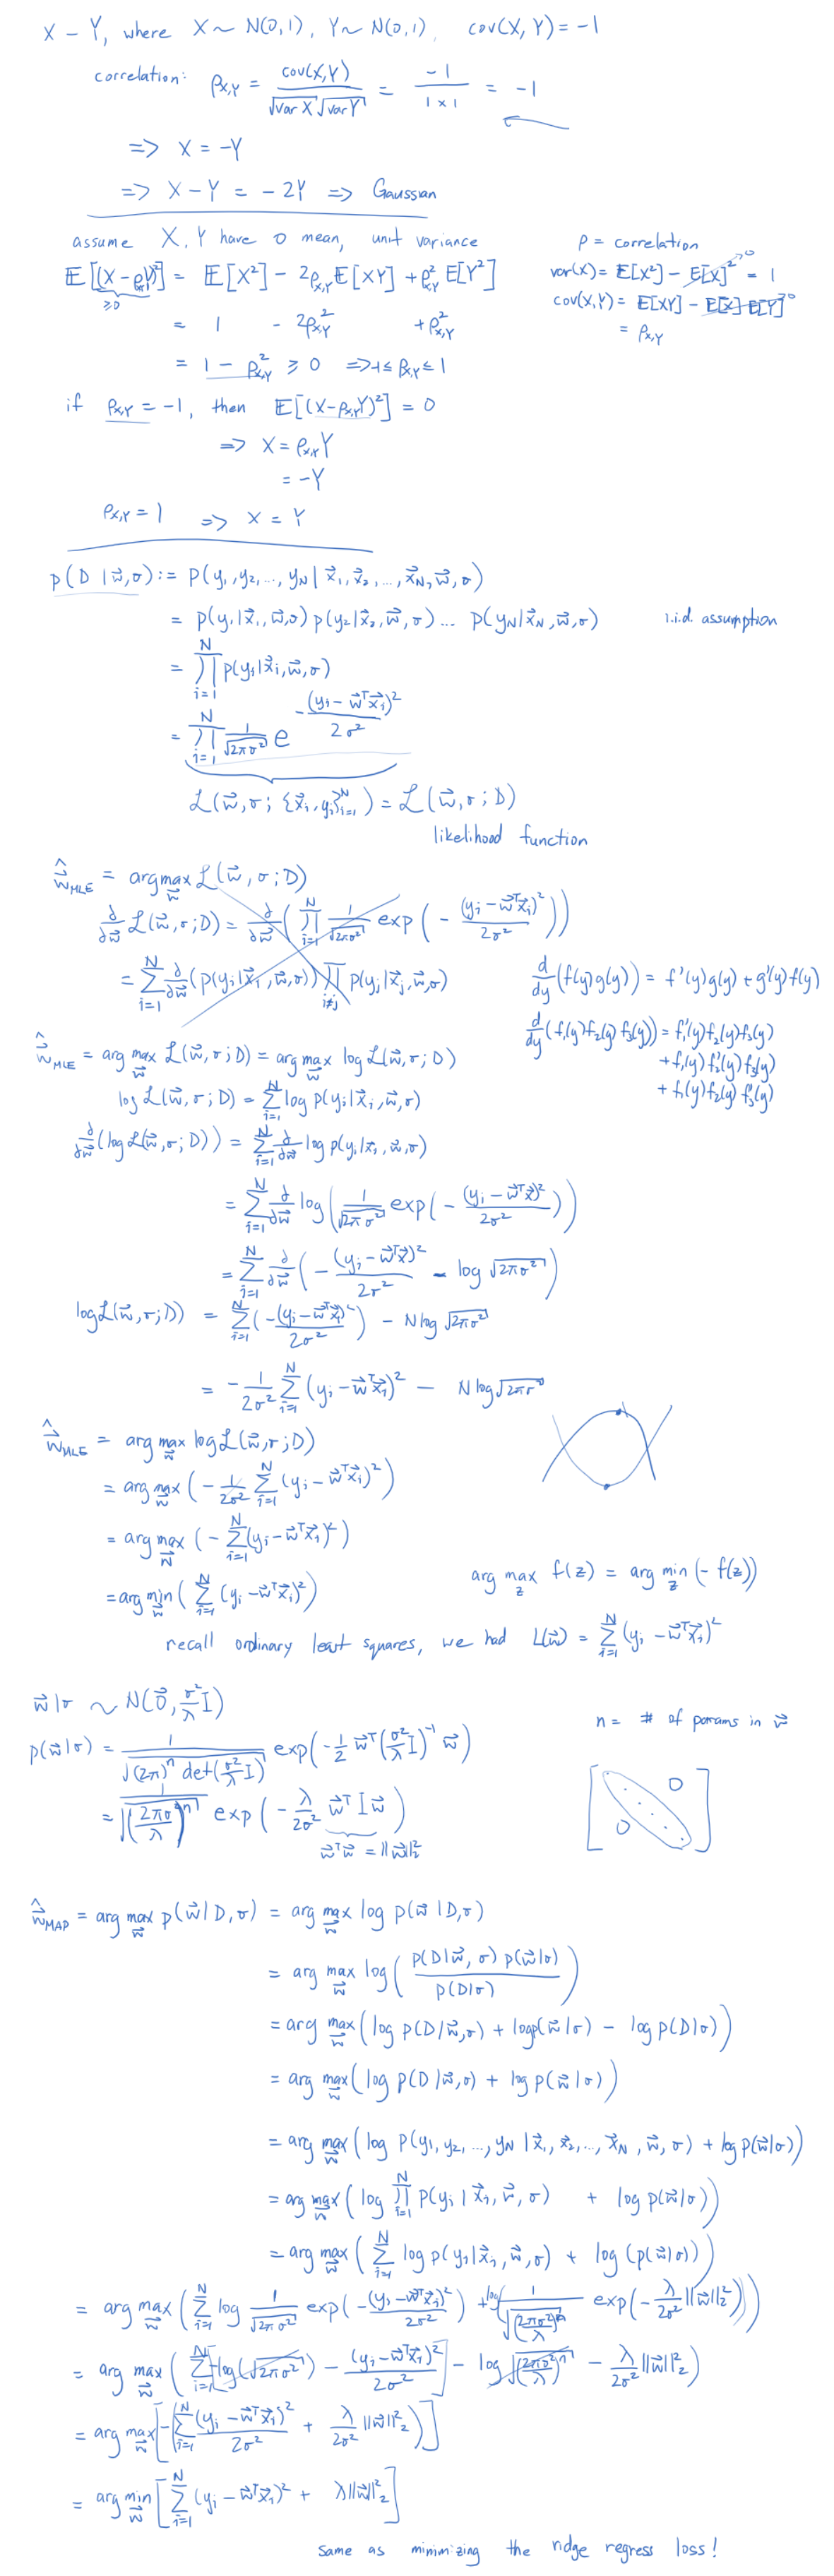 X − Y, where X ~ N(0,1), Y ~ N(0,1), cov(X, Y) = −1
correlation: ρ_{X,Y} = cov(X,Y) / (√var X √var Y) = −1 / (1 × 1) = −1
=> X = −Y
=> X − Y = −2Y => Gaussian
assume X, Y have 0 mean, unit variance
ρ = correlation
𝔼[(X − ρ_{X,Y}Y)²] = 𝔼[X²] − 2ρ_{X,Y}𝔼[XY] + ρ²_{X,Y}E[Y²]
≥0
var(X) = E[X²] − E[X]² →0 = 1
cov(X,Y) = E[XY] − E[X]E[Y] →0
= ρ_{X,Y}
= 1 − 2ρ²_{X,Y} + ρ²_{X,Y}
= 1 − ρ²_{X,Y} ≥ 0 => −1 ≤ ρ_{X,Y} ≤ 1
if ρ_{X,Y} = −1, then 𝔼[(X − ρ_{X,Y}Y)²] = 0
=> X = ρ_{X,Y}Y
= −Y
ρ_{X,Y} = 1 => X = Y
p(D | w⃗, σ) := P(y₁, y₂, ..., y_N | x⃗₁, x⃗₂, ..., x⃗_N, w⃗, σ)
= p(y₁|x⃗₁, w⃗, σ) p(y₂|x⃗₂, w⃗, σ) ... p(y_N|x⃗_N, w⃗, σ) i.i.d. assumption
= ∏_{i=1}^N p(y_i|x⃗_i, w⃗, σ)
= ∏_{i=1}^N 1/√(2πσ²) e^{−(y_i − w⃗ᵀx⃗_i)² / 2σ²}
ℒ(w⃗, σ; {x⃗_i, y_i}_{i=1}^N) = ℒ(w⃗, σ; D)
likelihood function
ŵ⃗_MLE = argmax_w⃗ ℒ(w⃗, σ; D)
∂/∂w⃗ ℒ(w⃗, σ; D) = ∂/∂w⃗ (∏_{i=1}^N 1/√(2πσ²) exp(−(y_i − w⃗ᵀx⃗_i)² / 2σ²))
= ∑_{i=1}^N ∂/∂w⃗ (p(y_i|x⃗_i, w⃗, σ)) ∏_{i≠j} p(y_j|x⃗_j, w⃗, σ)
d/dy (f(y)g(y)) = f'(y)g(y) + g'(y)f(y)
d/dy (f₁(y)f₂(y)f₃(y)) = f₁'(y)f₂(y)f₃(y)
+ f₁(y)f₂'(y)f₃(y)
+ f₁(y)f₂(y)f₃'(y)
ŵ⃗_MLE = arg max_w⃗ ℒ(w⃗, σ; D) = arg max_w⃗ log ℒ(w⃗, σ; D)
log ℒ(w⃗, σ; D) = ∑_{i=1}^N log p(y_i|x⃗_i, w⃗, σ)
∂/∂w⃗ (log ℒ(w⃗, σ; D)) = ∑_{i=1}^N ∂/∂w⃗ log p(y_i|x⃗_i, w⃗, σ)
= ∑_{i=1}^N ∂/∂w⃗ log(1/√(2πσ²) exp(−(y_i − w⃗ᵀx⃗)² / 2σ²))
= ∑_{i=1}^N ∂/∂w⃗ (−(y_i − w⃗ᵀx⃗)² / 2σ² − log √(2πσ²))
log ℒ(w⃗, σ; D) = ∑_{i=1}^N (−(y_i − w⃗ᵀx⃗_i)² / 2σ²) − N log √(2πσ²)
= −1/2σ² ∑_{i=1}^N (y_i − w⃗ᵀx⃗_i)² − N log √(2πσ²)
ŵ⃗_MLE = arg max_w⃗ log ℒ(w⃗, σ; D)
= arg max_w⃗ (−1/2σ² ∑_{i=1}^N (y_i − w⃗ᵀx⃗_i)²)
= arg max_w⃗ (−∑_{i=1}^N (y_i − w⃗ᵀx⃗_i)²)
= arg min_w⃗ (∑_{i=1}^N (y_i − w⃗ᵀx⃗_i)²)
arg max_z f(z) = arg min_z (−f(z))
recall ordinary least squares, we had L(w⃗) = ∑_{i=1}^N (y_i − w⃗ᵀx⃗_i)²
w⃗|σ ~ N(0⃗, σ²/λ I)
n = # of params in w⃗
p(w⃗|σ) = 1/√((2π)ⁿ det(σ²/λ I)) exp(−1/2 w⃗ᵀ(σ²/λ I)⁻¹ w⃗)
= 1/√((2πσ²/λ)ⁿ) exp(−λ/2σ² w⃗ᵀ I w⃗)
w⃗ᵀw⃗ = ||w⃗||₂²
0
0
ŵ⃗_MAP = arg max_w⃗ p(w⃗|D, σ) = arg max_w⃗ log p(w⃗|D, σ)
= arg max_w⃗ log(p(D|w⃗, σ) p(w⃗|σ) / p(D|σ))
= arg max_w⃗ (log p(D|w⃗, σ) + log p(w⃗|σ) − log p(D|σ))
= arg max_w⃗ (log p(D|w⃗, σ) + log p(w⃗|σ))
= arg max_w⃗ (log P(y₁, y₂, ..., y_N | x⃗₁, x⃗₂, ..., x⃗_N, w⃗, σ) + log p(w⃗|σ))
= arg max_w⃗ (log ∏_{i=1}^N P(y_i | x⃗_i, w⃗, σ) + log p(w⃗|σ))
= arg max_w⃗ (∑_{i=1}^N log p(y_i|x⃗_i, w⃗, σ) + log (p(w⃗|σ)))
= arg max_w⃗ (∑_{i=1}^N log 1/√(2πσ²) exp(−(y_i − w⃗ᵀx⃗_i)² / 2σ²) + log(1/√((2πσ²/λ)ⁿ) exp(−λ/2σ² ||w⃗||₂²)))
= arg max_w⃗ (∑_{i=1}^N [−log(√(2πσ²)) − (y_i − w⃗ᵀx⃗_i)² / 2σ²] − log √((2πσ²/λ)ⁿ) − λ/2σ² ||w⃗||₂²)
= arg max_w⃗ [−(∑_{i=1}^N (y_i − w⃗ᵀx⃗_i)² / 2σ² + λ/2σ² ||w⃗||₂²)]
= arg min_w⃗ [∑_{i=1}^N (y_i − w⃗ᵀx⃗_i)² + λ||w⃗||₂²]
same as minimizing the ridge regress loss!